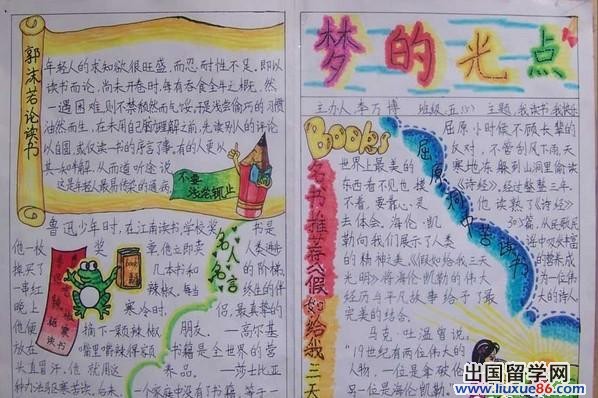 郭沫若论读书
年轻人的求知欲很旺盛,而忍耐性不足,即以
读书而论,尚未开卷时,每有吞食全牛之概,然
一遇困难,则不禁颓然而气馁,于是浅尝偷巧的习惯
油然而生,在未用自己脑力理解之前,先读别人的评论
以自囿,或仅读一书的序言了事,有的人更以
其知半解,从而道听途说
这是年轻人最易传染的通病
不要浅尝辄止
鲁迅少年时,在江南读书,学校奖
他一枚
奖
章,他立即卖
掉买了
几本书和
一串红
辣椒。每当
晚上
寒冷时,
他便
摘下一颗辣椒
放在
嘴里嚼辣得额
头直冒汗,他就用这
种办法驱寒苦读。后来
鲁迅嚼辣椒驱寒读书
名人名言
书是
人类进步
的阶梯,
终生的伴
侣,最真挚的
朋友。
——高尔基
书籍是全世界的营
养品。——莎士比亚
一个家庭中没有了书籍,等于一
梦的光点
主办人:李万博 班级:五(5) 主题:我读书,我快乐
Books
名书推荐《假如给我三天
世界上最美的
东西看不见也摸
不着,要靠心灵
去体会,海伦·凯
勒向我们展示了人类
的精神之美,《假如给我三天
光明》将海伦凯勒的伟大
经历与平凡故事给予了最
完美的结合。
马克·吐温曾说:
"19世纪有两位伟大的
人物,一位是拿破仑
另一位是海伦凯勒。"
屈原洞中苦读书
屈原小时候不顾长辈的
反对,不管刮风下雨天
寒地冻躲到山洞里偷读
《诗经》,经过整整三年,
他读熟了《诗经》
305篇,从民歌民
谣中吸收丰富
的营养,成
为一位伟
大的诗人
出国留学网
www.liuxue86.com